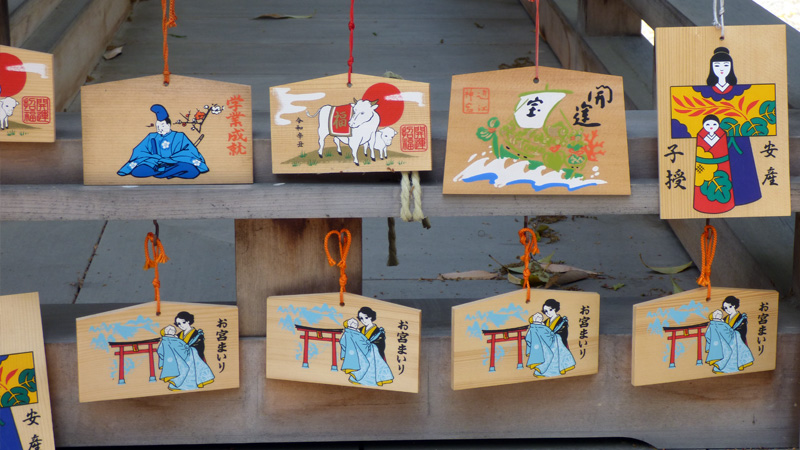 開運
招福
学業成就
令和辛丑
福
開運
招福
宝
開運
安産
子授
安産
お宮まいり
お宮まいり
お宮まいり
お宮まいり